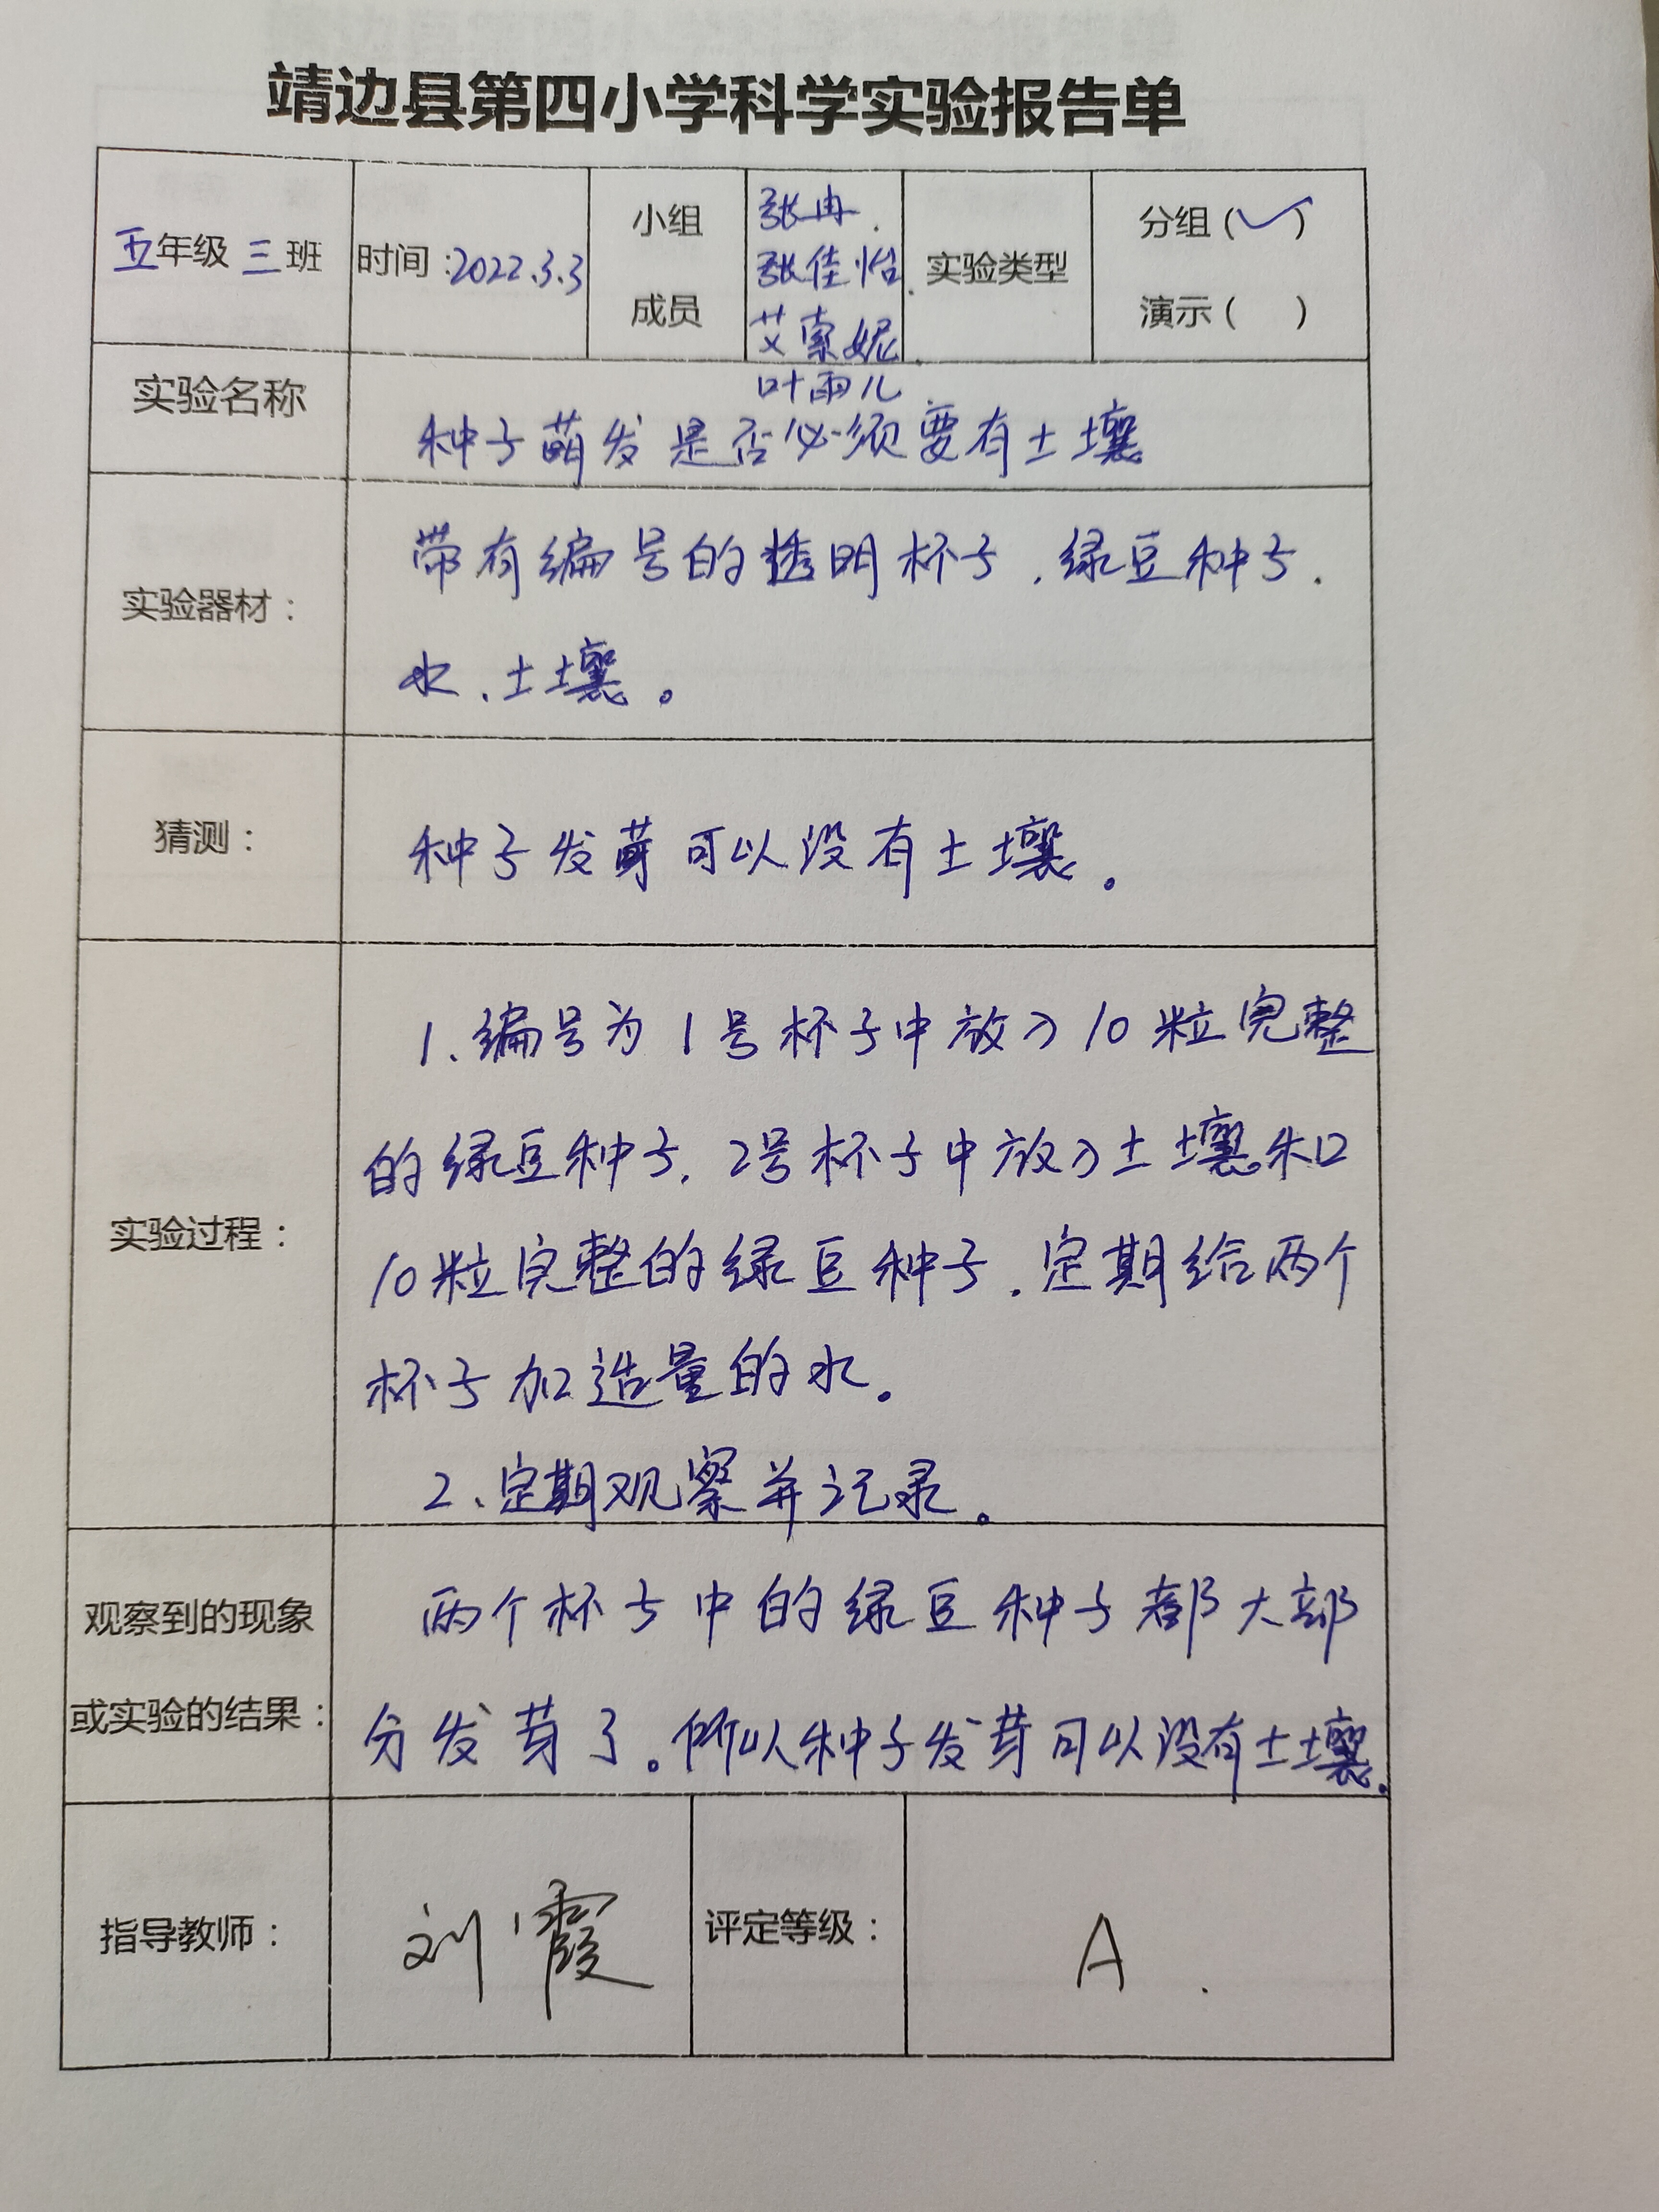 靖边县第四小学科学实验报告单
五年级 三 班
时间：2022.3.3
小组
成员
张冉.
张佳怡.
艾索妮.
叶雨儿
实验类型
分组（✓）
演示（ ）
实验名称
种子萌发是否必须要有土壤
实验器材：
带有编号的透明杯子、绿豆种子、
水、土壤。
猜测：
种子发芽可以没有土壤。
实验过程：
1、编号为1号杯子中放入10粒完整
的绿豆种子，2号杯子中放入土壤和
10粒完整的绿豆种子，定期给两个
杯子加适量的水。
2、定期观察并记录。
观察到的现象
或实验的结果：
两个杯子中的绿豆种子都大部
分发芽了。所以种子发芽可以没有土壤。
指导教师：
刘霞
评定等级：
A.